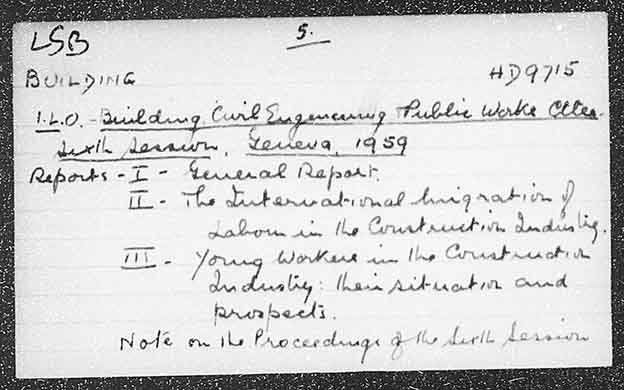 LSB
5.
BUILDING
HD9715
I.L.O. - Building, Civil Engineering Public Works Cttee.
Sixth Session, Geneva, 1959
Reports - I - General Report.
II - The International Migration of
Labour in the Construction Industry.
III - Young Workers in the Construction
Industry: their situation and
prospects.
Note on the Proceedings of the Sixth Session